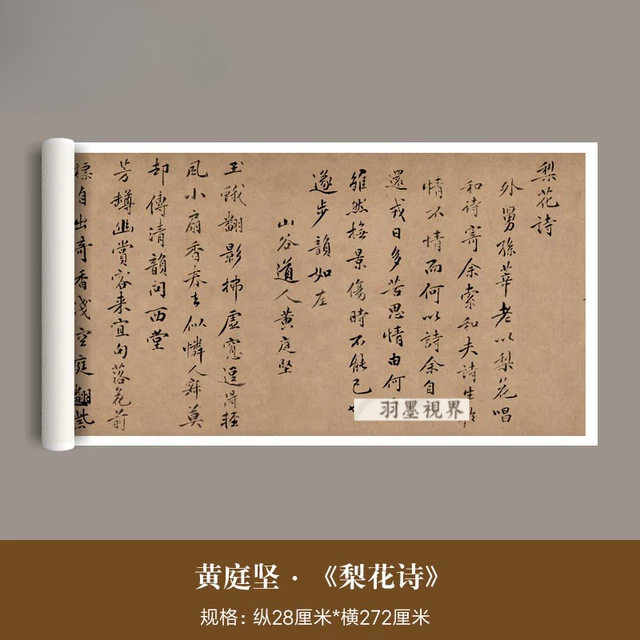 梨花诗
外舅孫莘老以梨花唱
和诗寄余索和夫诗生於
情不情而何以詩余自
還戎日多苦思情由何
雖然撫景傷時不能已
遂步韻如左
山谷道人黄庭坚
玉戲翻影拂虚窓逗得輕
風小扇香春去似憐人寂莫
却傳清韻问西堂
芳樽幽賞客来宜句落花前
標自出奇香淺空庭翻
羽墨視界
黄庭坚·《梨花诗》
规格：纵28厘米*横272厘米